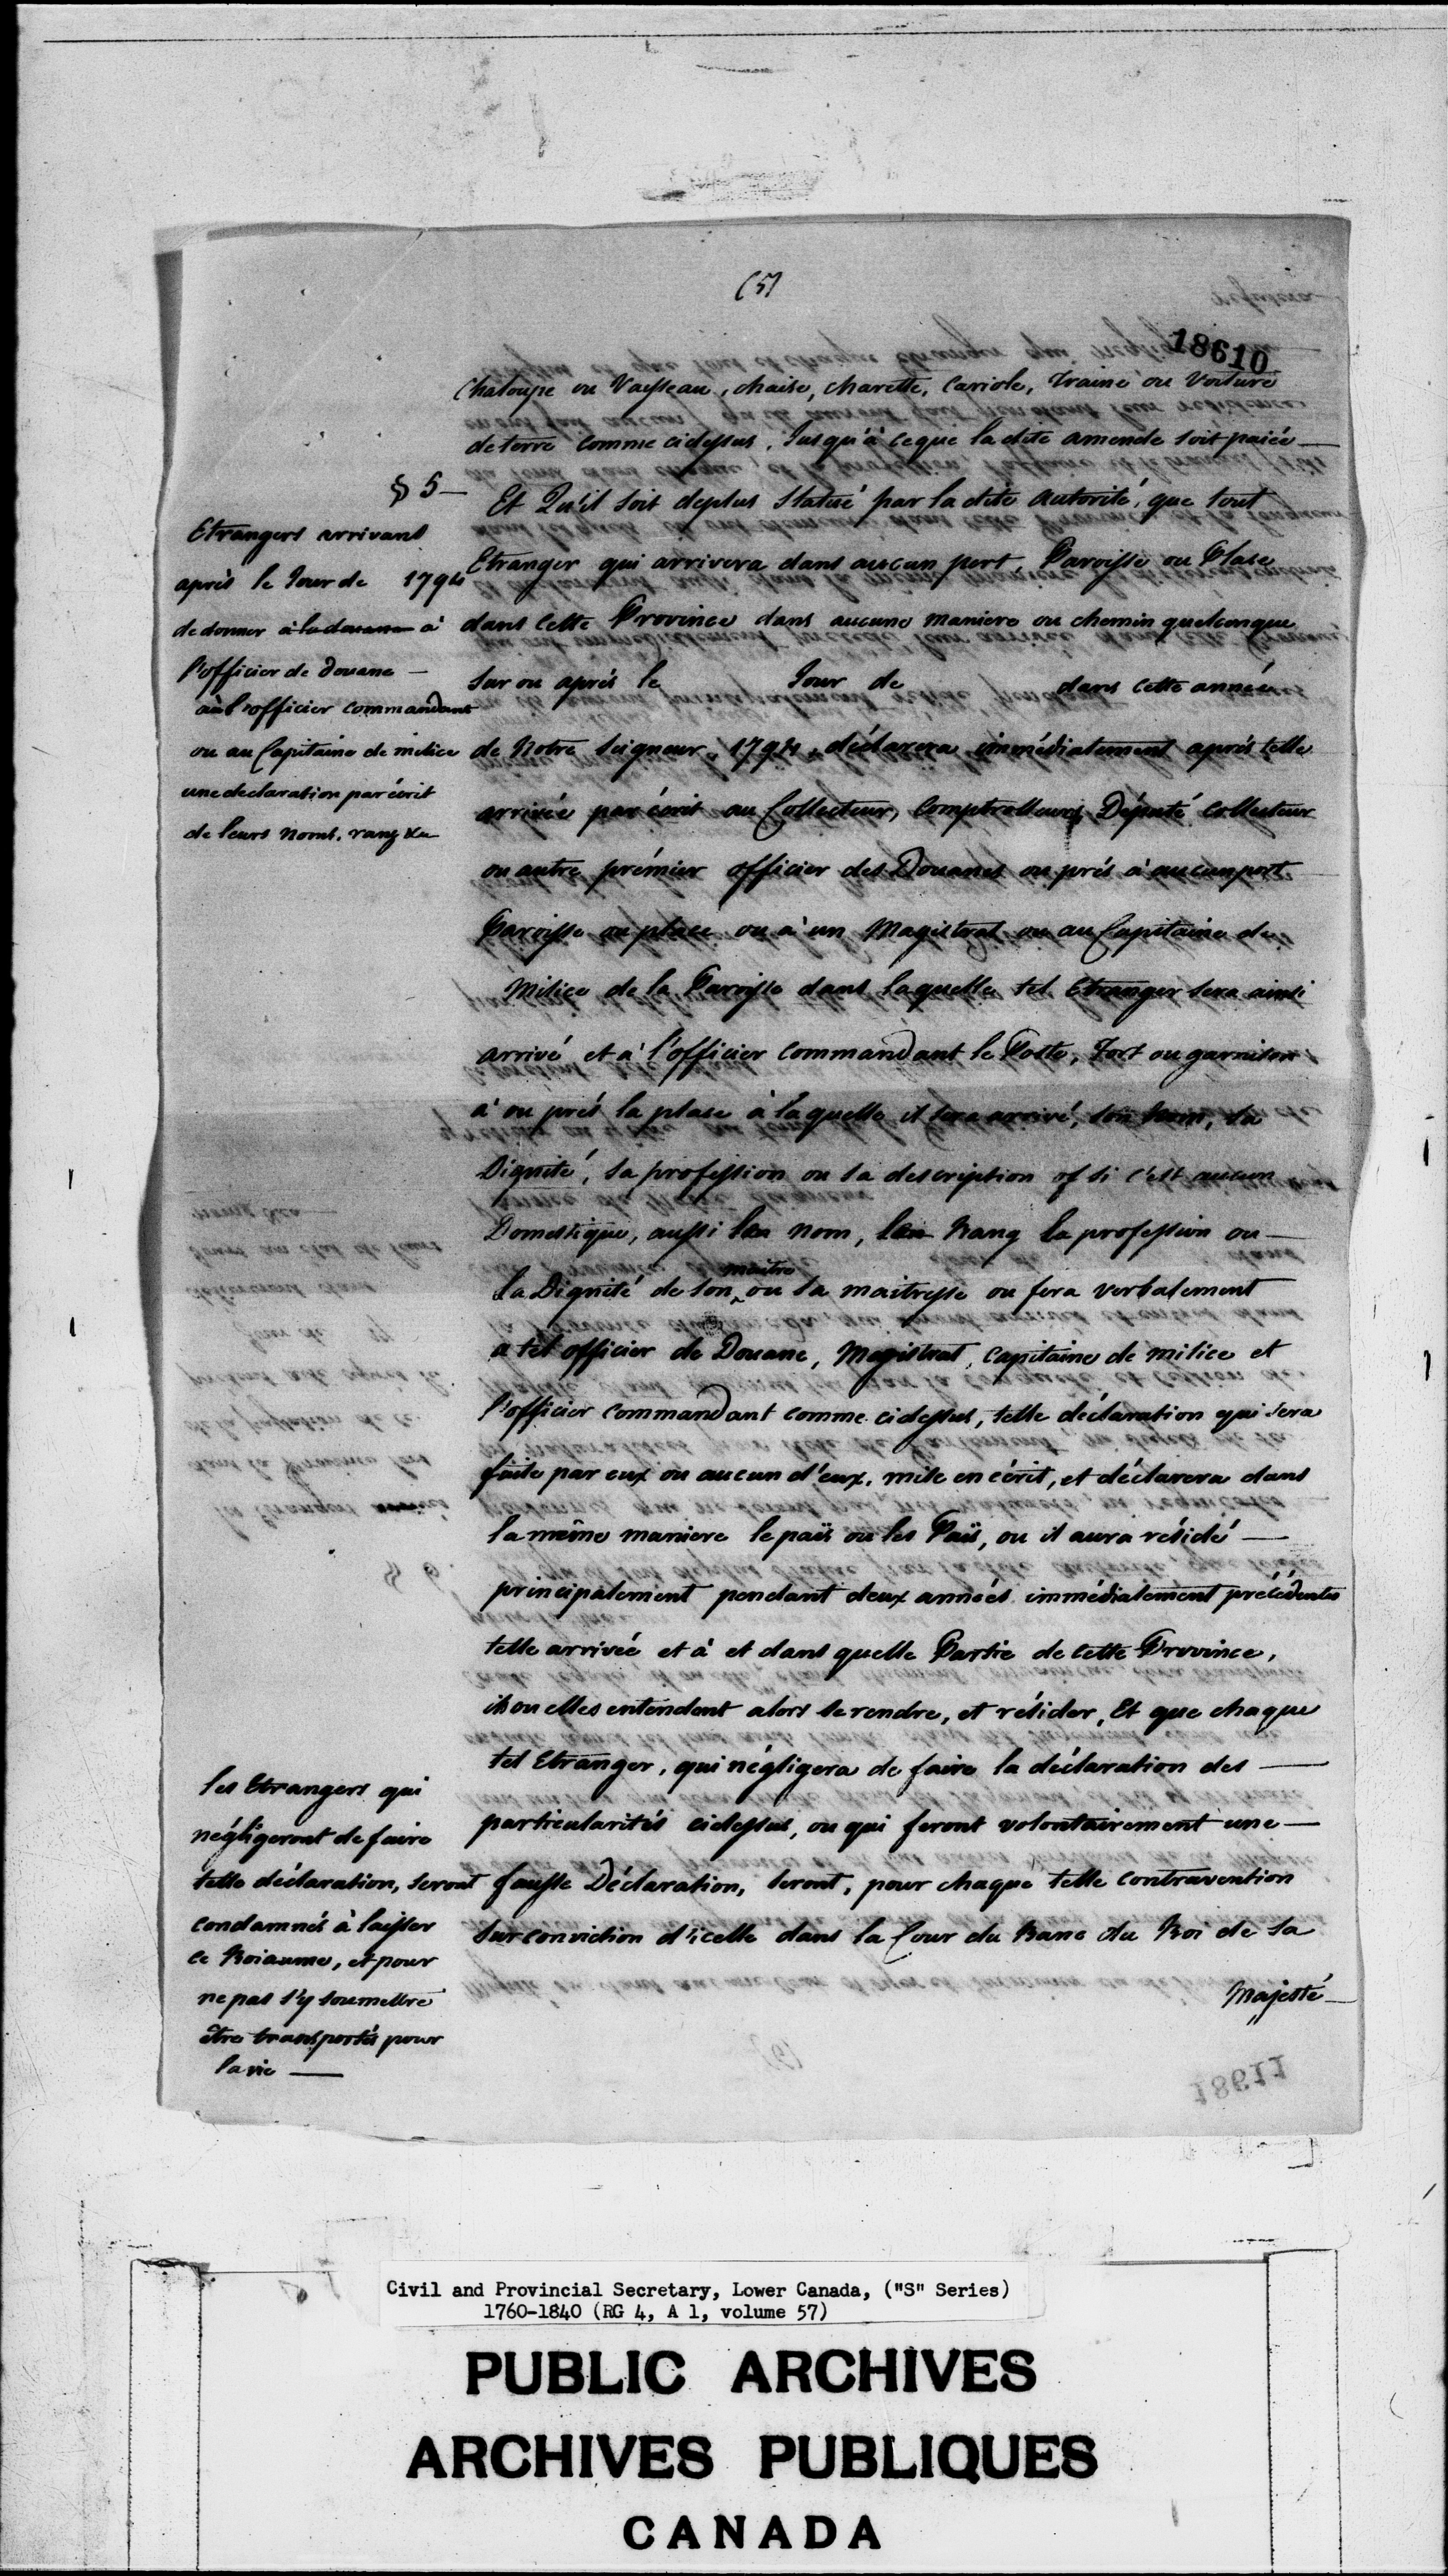 (5)
18610
Chaloupe ou Vaisseau, chaise, charette, Cariole, Traine ou Voiture
de terre comme cidessus, Jusqu'à ceque la dite amende soit paiée —
§ 5 —
Et Qu'il soit deplus Statué par la dite autorité, que tout
Etranger qui arrivera dans aucun port, Paroisse ou Place
dans cette Province dans aucune maniere ou chemin quelconque
sur ou après le Jour de dans cette année
de Notre Seigneur, 1794, déclarera immédiatement après telle
arrivée par écrit au Collecteur, Comptrolleur, Député Collecteur
ou autre prémier officier des Douanes ou près à aucun port
Paroisse ou place ou à un Magistrat ou au Capitaine de
Milice de la Paroisse dans laquelle tel Etranger sera ainsi
arrivé et à l'officier commandant le Poste, Fort ou garnison
à ou près la place à laquelle il sera arrivé, son Nom, sa
Dignité, sa profession ou sa description et si c'est aucun
Domestique, aussi le nom, le Rang la profession ou —
la Dignité de son maitre ou sa maitresse ou fera verbalement
a tel officier de Douane, Magistrat, capitaine de milice et
l'officier commandant comme cidessus, telle déclaration qui sera
faite par eux ou aucun d'eux, mise en écrit, et déclarera dans
la même maniere le païs ou les Païs, ou il aura résidé —
principalement pendant deux années immédiatement précédentes
telle arrivée et à et dans quelle Partie de cette Province,
ils ou elles entendent alors se rendre, et résider, Et que chaque
tel Etranger, qui négligera de faire la déclaration des —
particularités cidessus, ou qui feront volontairement une —
fausse Déclaration, seront, pour chaque telle contravention
sur conviction d'icelle dans la Cour du Banc du Roi de Sa
Majesté —
Etrangers arrivans
après le Jour de 1794
de donner à la douane à
l'officier de Douane —
à l'officier commandant
ou au Capitaine de milice
une declaration par écrit
de leurs noms, rang &a
les Etrangers qui
négligeront de faire
telle déclaration, seront
condamnés à laisser
ce Roiaume, et pour
ne pas s'y soumettre
être transportés pour
la vie —
18611
Civil and Provincial Secretary, Lower Canada, ("S" Series)
1760-1840 (RG 4, A 1, volume 57)
PUBLIC ARCHIVES
ARCHIVES PUBLIQUES
CANADA